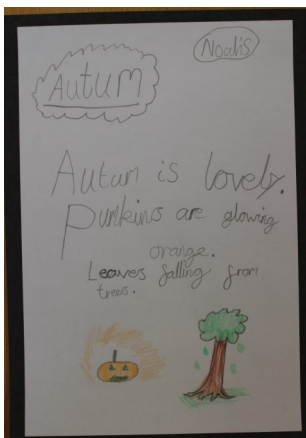 Noalis
Autum
Autum is lovely.
Pumkins are glowing
orange.
Leaves falling from
trees.